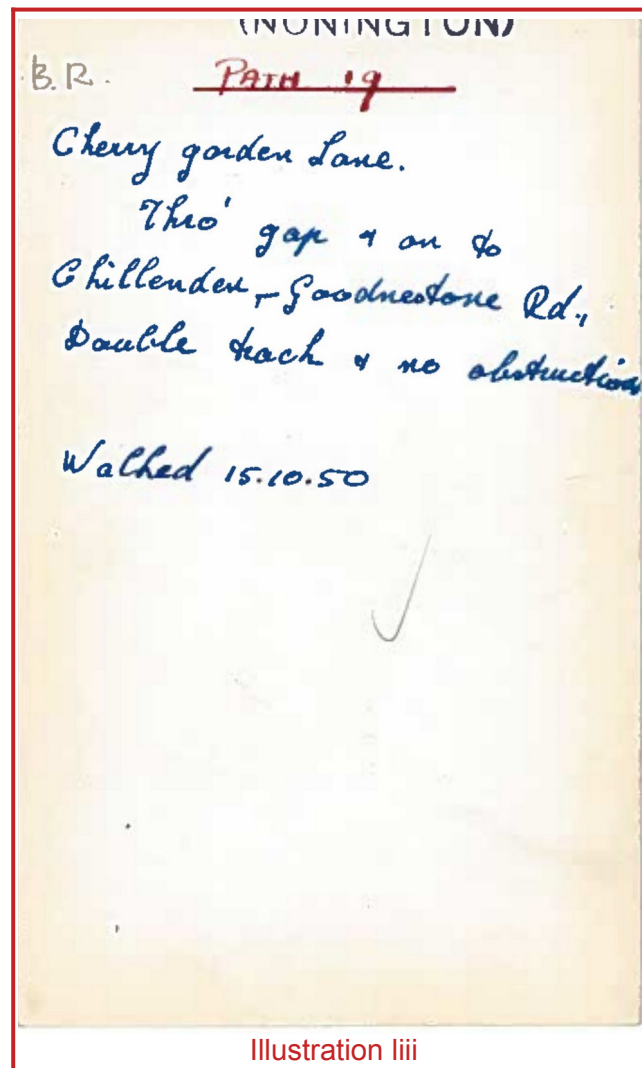 (NONINGTON)
B.R.
PATH 19
Cherry garden Lane.
Thro' gap & on to
Chillenden - Goodnestone Rd.,
Double track & no obstruction
Walked 15.10.50
Illustration Iiii